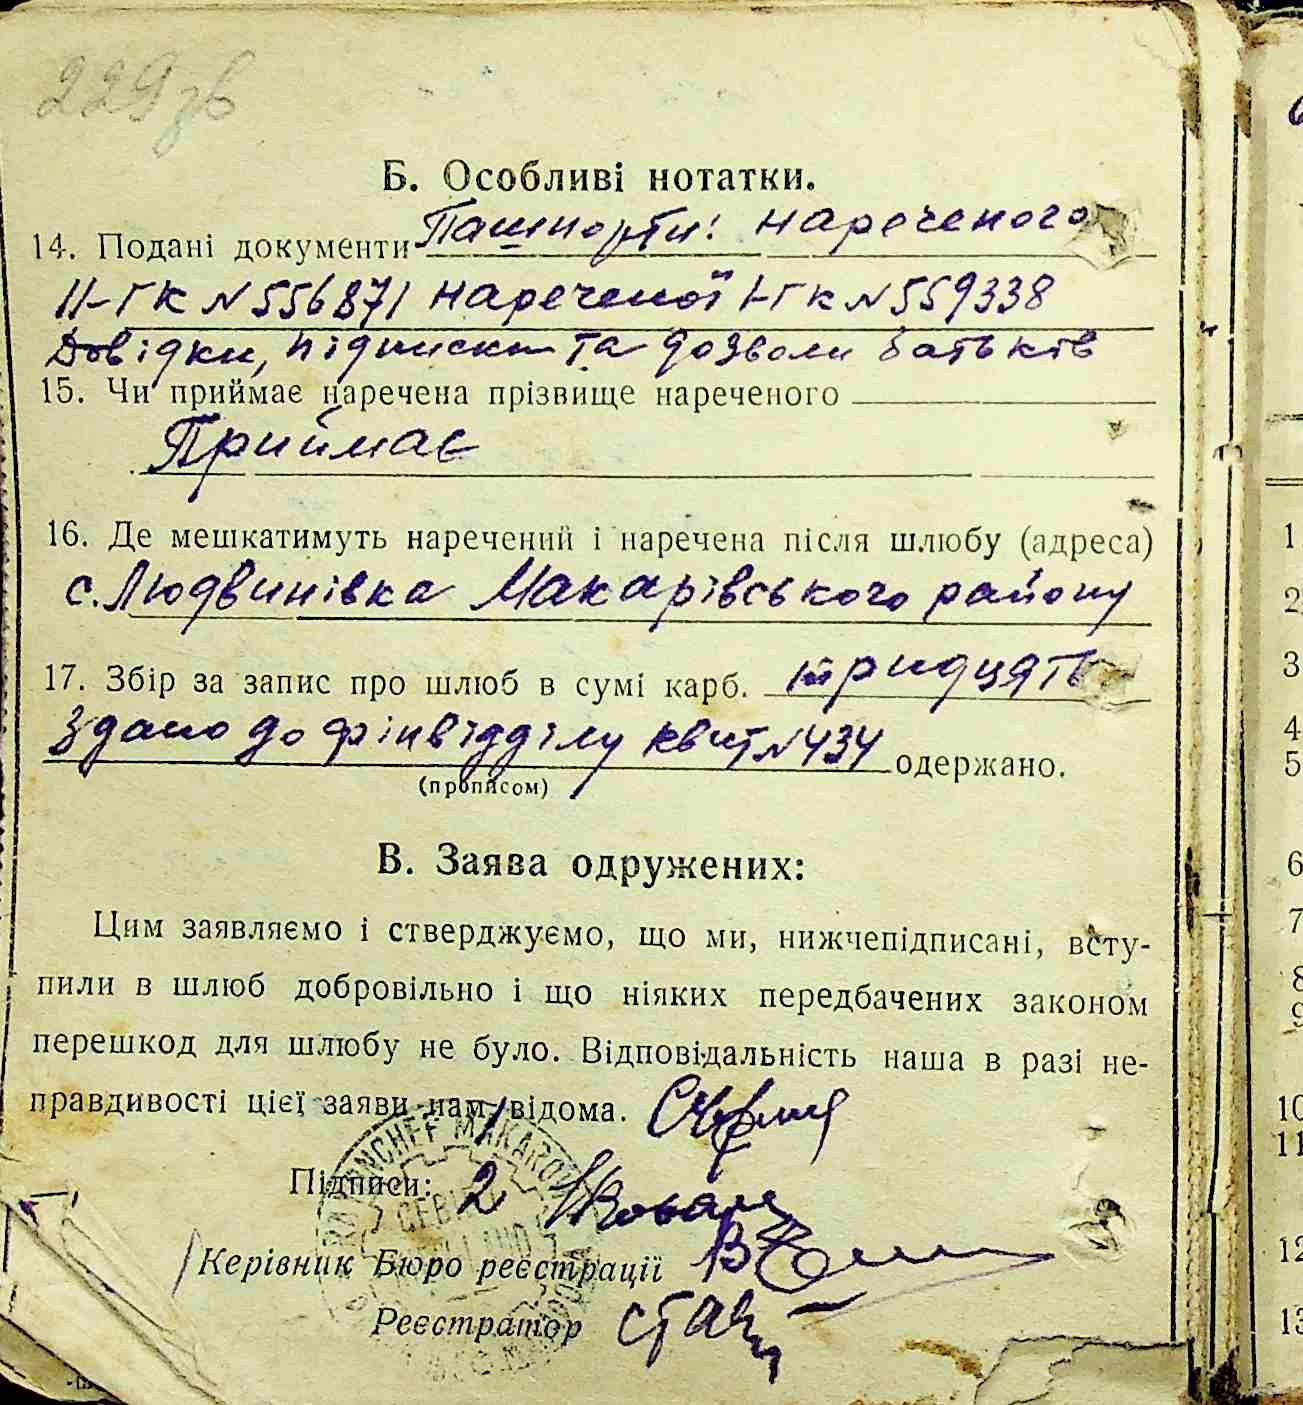 229зв
Б. Особливі нотатки.
14. Подані документи Пашпорти: нареченого
ІІ-ГК № 556871 нареченої І-ГК № 559338
Довідки, підписки та дозволи батьків
15. Чи приймає наречена прізвище нареченого
Приймає
16. Де мешкатимуть наречений і наречена після шлюбу (адреса)
с. Людвинівка Макарівського району
17. Збір за запис про шлюб в сумі карб. тридцять
Здано до фінвідділу квит № 434 одержано.
(прописом)
В. Заява одружених:
Цим заявляємо і стверджуємо, що ми, нижчепідписані, всту-
пили в шлюб добровільно і що ніяких передбачених законом
перешкод для шлюбу не було. Відповідальність наша в разі не-
правдивості цієї заяви нам відома.
1
Підписи: 2
Керівник Бюро реєстрації
Реєстратор
1
2
3
4
5
6
7
8
9
10
11
12
13